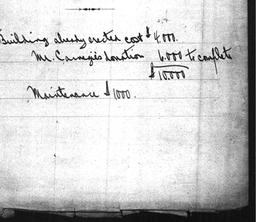 Building already erected cost $4,000.
Mr. Carnegie's donation 6,000 to complete
$10,000
Maintenance $1000.